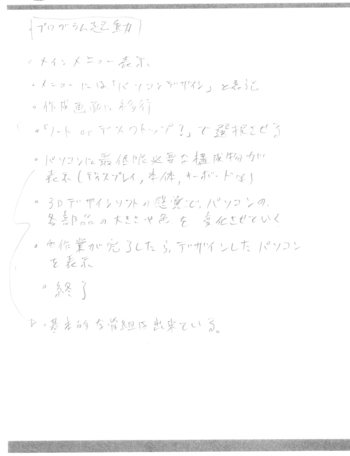 プログラム起動
・メインメニュー表示
・メニューには「パソコンデザイン」と表記
・作成画面に移行
・「ノート or デスクトップ?」で選択させる
・パソコンに最低限必要な構成物が
表示(ディスプレイ,本体,キーボードなど)
・3Dデザインソフトの感覚で、パソコンの、
各部品の大きさや色を変化させていく
・作業が完了したら、デザインしたパソコン
を表示
・終了
・基本的な骨組は出来ている。